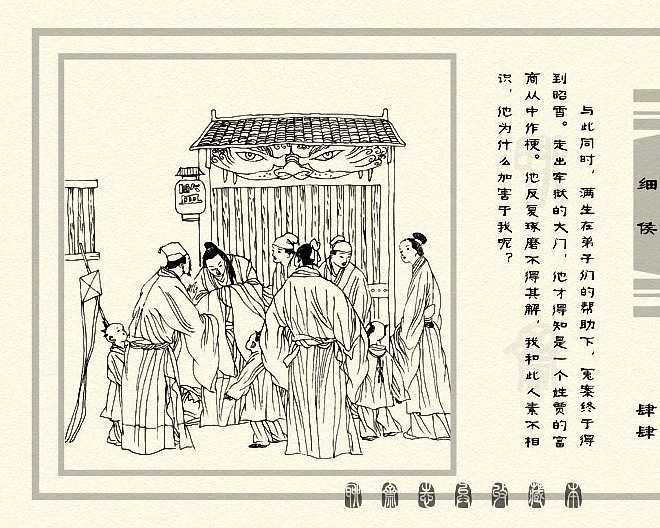 与此同时，满生在弟子们的帮助下，冤案终于得
到昭雪。走出牢狱的大门，他才得知是一个姓贾的富
商从中作梗。他反复琢磨不得其解，我和此人素不相
识，他为什么加害于我呢？
细侯
肆肆